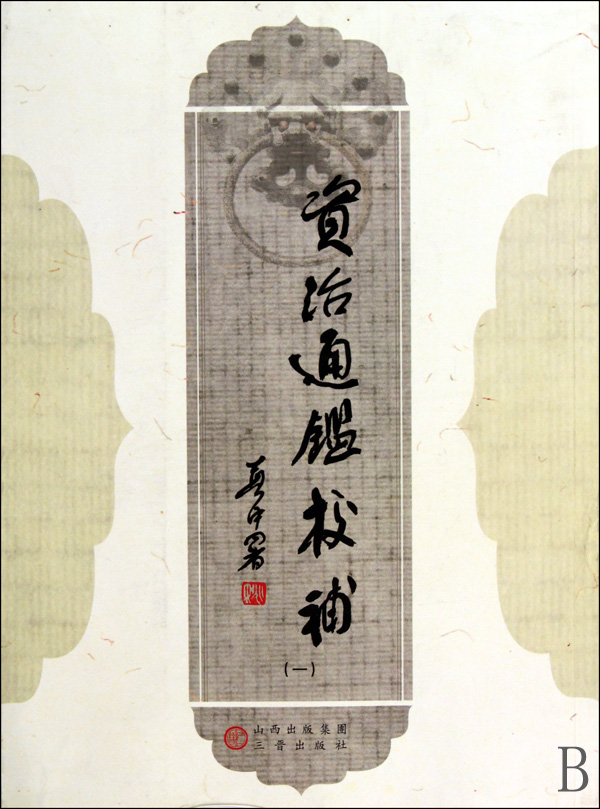 資治通鑑校補
奠中署
(一)
山西出版集團
三晉出版社
B